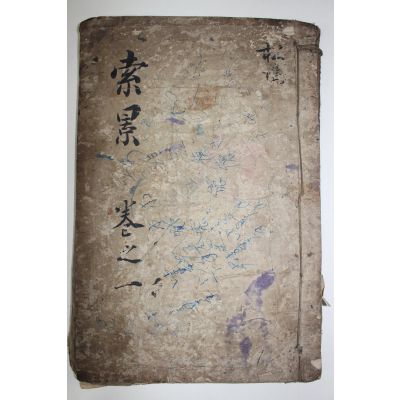 松
索景 卷之一